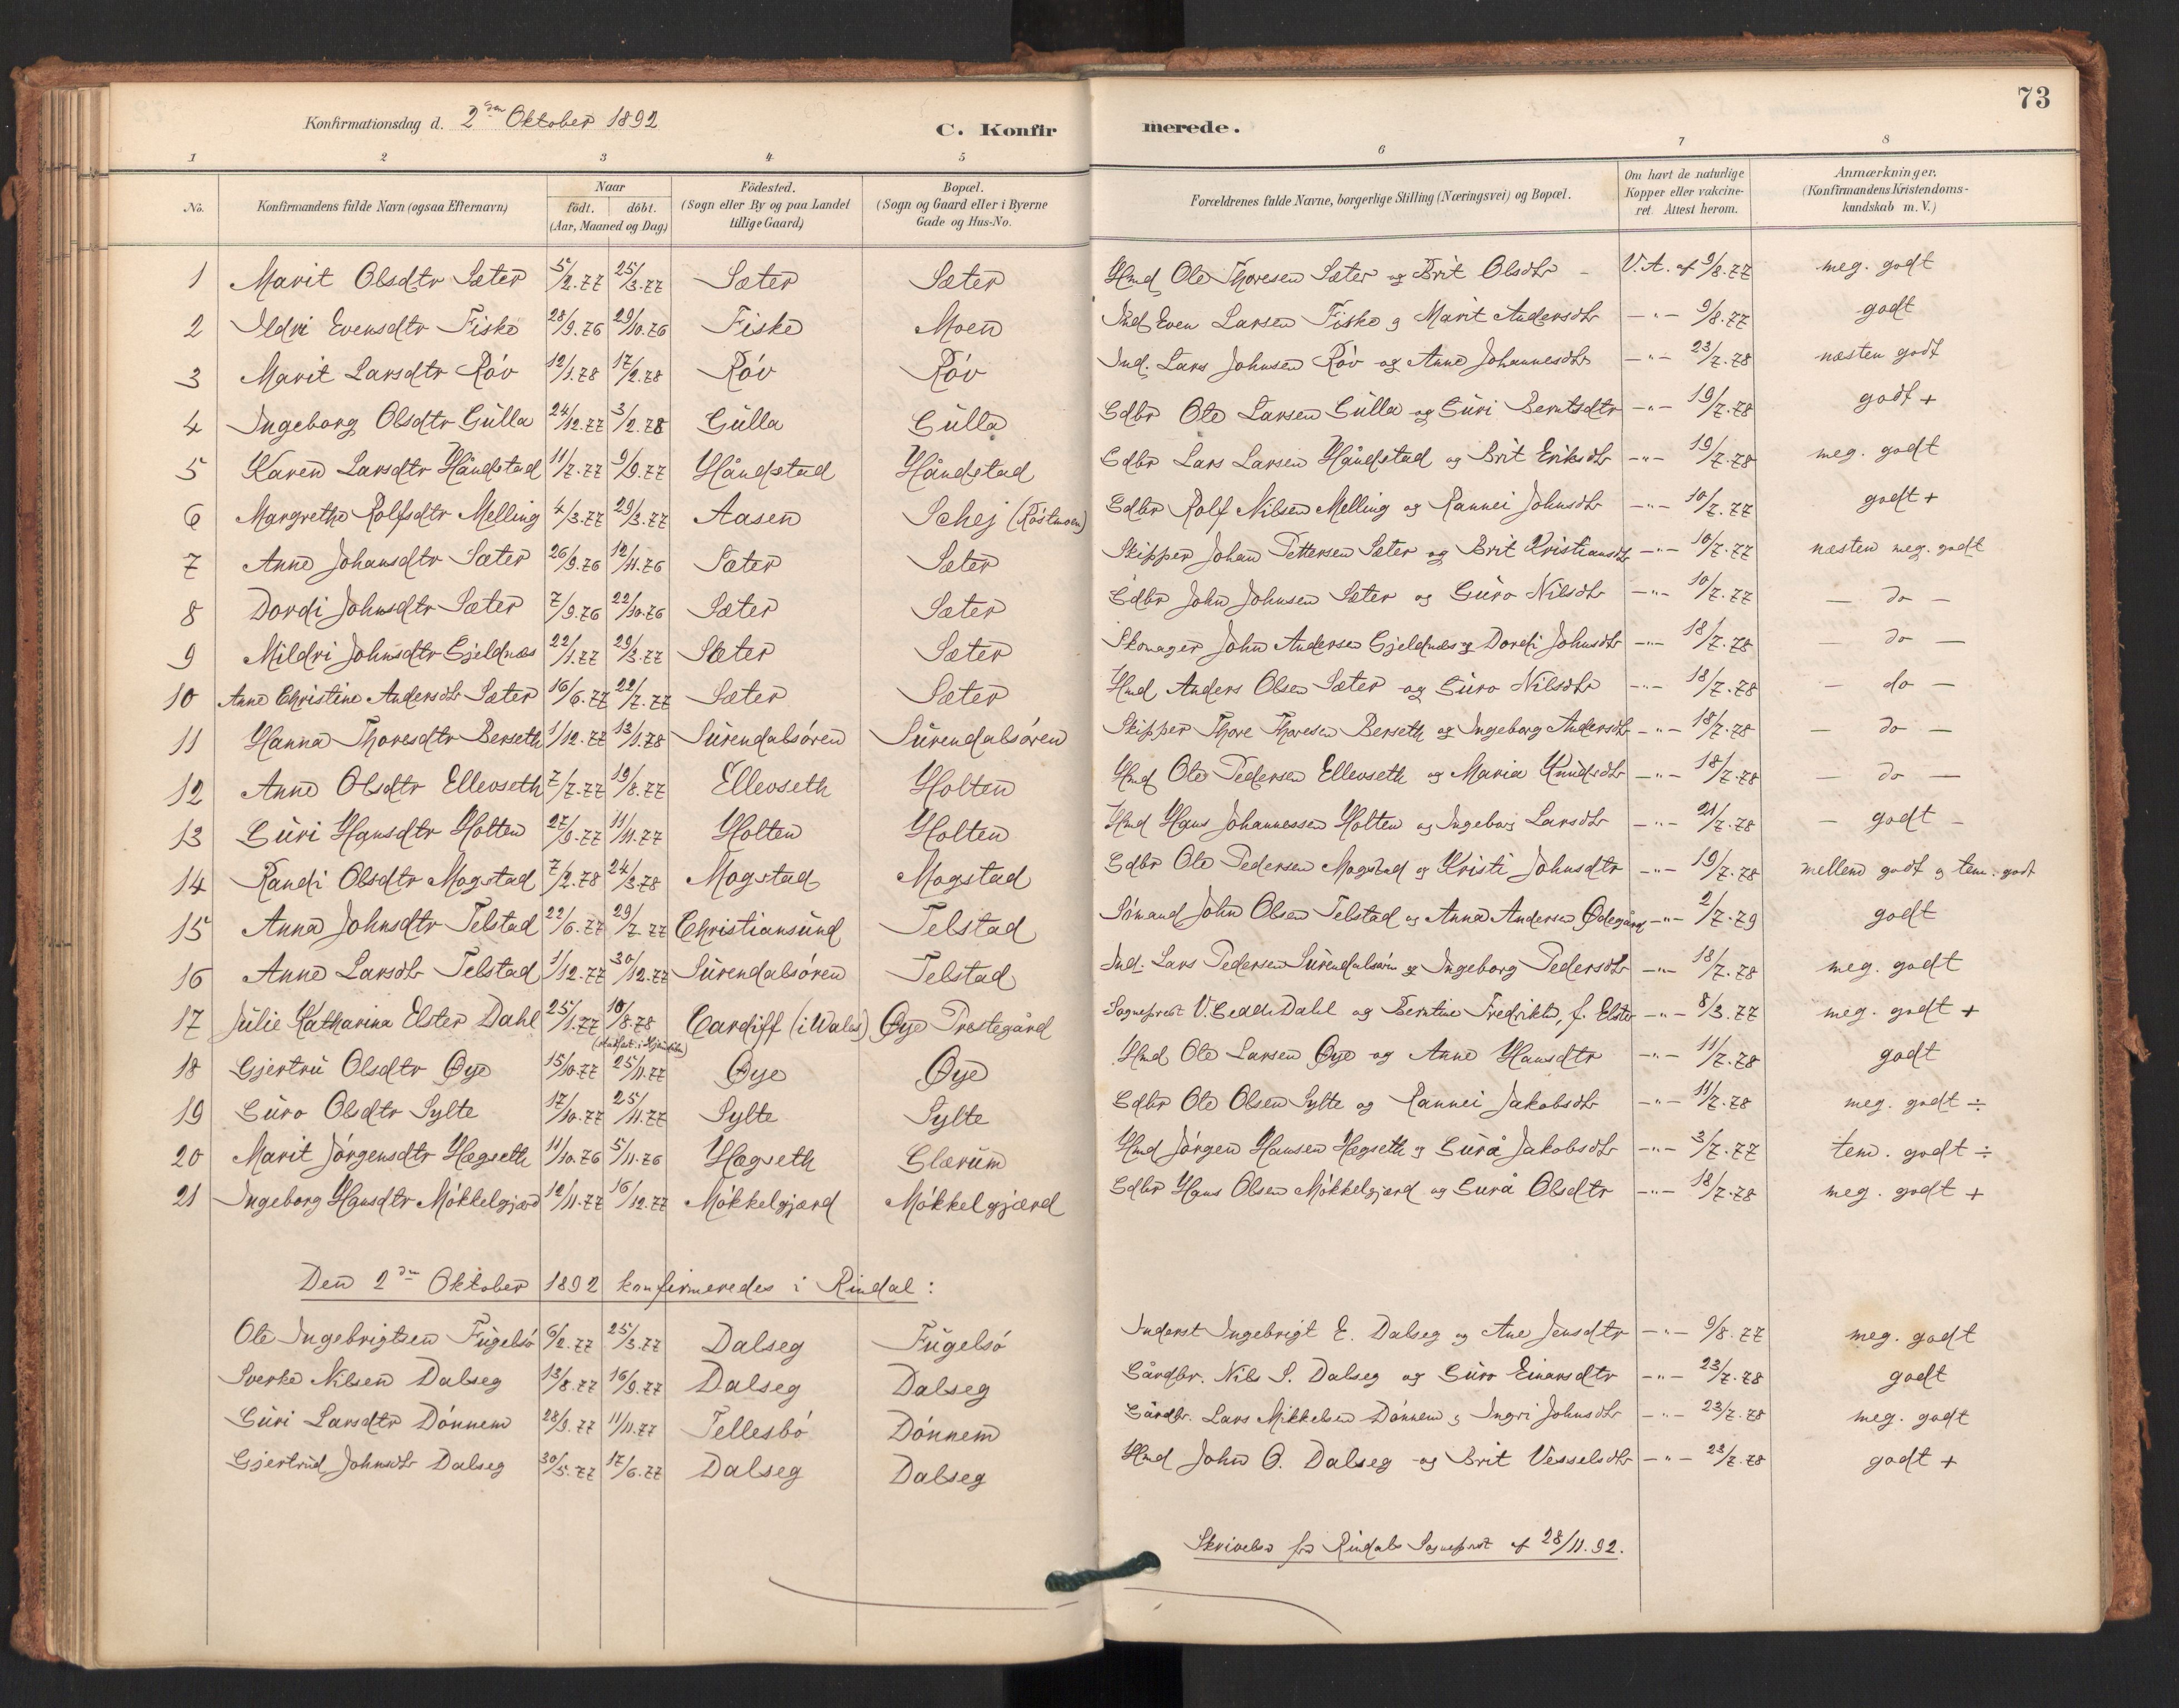 73
Konfirmationsdag d. 2den Oktober 1892
C. Konfirmerede.
1 2 3 4 5 6 7 8
No. Konfirmandens fulde Navn (ogsaa Efternavn) Naar födt. döbt. (Aar, Maaned og Dag) Födested. (Sogn eller By og paa Landet tillige Gaard) Bopæl. (Sogn og Gaard eller i Byerne Gade og Hus-No. Forældrenes fulde Navne, borgerlige Stilling (Næringsvei) og Bopæl. Om havt de naturlige Kopper eller vakcineret. Attest herom. Anmærkninger. (Konfirmandens Kristendomskundskab m. V.)
1 Marit Olsdtr Sæter 5/2.77 25/3.77 Sæter Sæter Hmd Ole Thoresen Sæter og Brit Olsdtr - V.A. af 9/8.77 meg. godt
2 Ildri Evensdtr Fiske 28/9.76 29/10.76 Fiske Moen Ind Even Larsen Fiske og Marit Andersdtr -"- 9/8.77 godt
3 Marit Larsdtr Röv 12/1.78 17/2.78 Röv Röv Ind. Lars Johnsen Röv og Anne Johannesdtr -"- 23/7.78 næsten godt
4 Ingeborg Olsdtr Gulla 24/12.77 3/2.78 Gulla Gulla Gdbr Ole Larsen Gulla og Guri Berntsdtr -"- 19/7.78 godt +
5 Karen Larsdtr Håndstad 11/7.77 9/9.77 Håndstad Håndstad Gdbr Lars Larsen Håndstad og Brit Eriksdtr -"- 19/7.78 meg. godt
6 Margrethe Rolfsdtr Melling 4/3.77 29/3.77 Aasen Schej (Röstmoen) Gdbr Rolf Nilsen Melling og Rannei Johnsdtr -"- 10/7.77 godt +
7 Anne Johansdtr Sæter 26/9.76 12/11.76 Sæter Sæter Skipper Johan Pettersen Sæter og Brit Kristiansdtr -"- 10/7.77 næsten meg. godt
8 Dordi Johnsdtr Sæter 7/9.76 22/10.76 Sæter Sæter Gdbr John Johnsen Sæter og Guro Nilsdtr -"- 10/7.77 - do -
9 Mildri Johnsdtr Gjeldnæs 22/1.77 29/3.77 Sæter Sæter Skomager John Andersen Gjeldnæs og Dordi Johnsdtr -"- 18/7.78 - do -
10 Anne Christine Andersdtr Sæter 16/6.77 22/7.77 Sæter Sæter Hmd Anders Olsen Sæter og Guro Nilsdtr -"- 18/7.78 - do -
11 Hanna Thoresdtr Berseth 1/12.77 13/1.78 Surendalsören Surendalsören Skipper Thore Thoresen Berseth og Ingeborg Andersdtr -"- 18/7.78 - do -
12 Anne Olsdtr Ellevseth 7/7.77 19/8.77 Ellevseth Holten Hmd Ole Pedersen Ellevseth og Maria Knudsdtr -"- 18/7.78 - do -
13 Guri Hansdtr Holten 27/9.77 11/11.77 Holten Holten Hmd Hans Johannessen Holten og Ingeborg Larsdtr -"- 21/7.78 - godt -
14 Randi Olsdtr Mogstad 7/2.78 24/3.78 Mogstad Mogstad Gdbr Ole Pedersen Mogstad og Kristi Johnsdtr -"- 19/7.78 mellem godt og tem. godt
15 Anna Johnsdtr Telstad 22/6.77 29/7.77 Christiansund Telstad Sömand John Olsen Telstad og Anna Andersen Ødegård -"- 2/7.79 godt
16 Anne Larsdtr Telstad 1/12.77 30/12.77 Surendalsören Telstad Ind. Lars Pedersen Surendalsören og Ingeborg Pedersdtr -"- 18/7.78 meg. godt
17 Julie Katharina Elster Dahl 25/1.77 10/8.78 Cardiff (i Wales) Øye Prestegård Sogneprest V. Gedde Dahl og Berntine Fredrikke, f. Elster -"- 8/3.77 meg. godt +
18 Gjertru Olsdtr Øye 15/10.77 25/11.77 Øye Øye Hmd Ole Larsen Øye og Anne Hansdtr -"- 11/7.78 godt
19 Guro Olsdtr Sylte 17/10.77 25/11.77 Sylte Sylte Gdbr Ole Olsen Sylte og Rannei Jakobsdtr -"- 11/7.78 meg. godt ÷
20 Marit Jörgensdtr Hægseth 11/10.76 5/11.76 Hægseth Glærum Hmd Jörgen Hansen Hægseth og Gurå Jakobsdtr -"- 3/7.77 tem. godt ÷
21 Ingeborg Hansdtr Mökkelgjærd 12/11.77 16/12.77 Mökkelgjærd Mökkelgjærd Gdbr Hans Olsen Mökkelgjærd og Gurå Olsdtr -"- 18/7.78 meg. godt +
Den 2den Oktober 1892 konfirmeredes i Rindal:
Ole Ingebrigtsen Fugelsö 6/2.77 25/3.77 Dalseg Fugelsö Inderst Ingebrigt E. Dalseg og Ane Jensdtr -"- 9/8.77 meg. godt
Sverke Nilsen Dalseg 13/8.77 16/9.77 Dalseg Dalseg Gårdbr. Nils S. Dalseg og Guro Einarsdtr -"- 23/7.78 godt
Guri Larsdtr Dönnem 28/9.77 11/11.77 Tellesbö Dönnem Gårdbr. Lars Mikkelsen Dönnem og Ingri Johnsdtr -"- 23/7.78 meg. godt
Gjertrud Johnsdtr Dalseg 30/5.77 17/6.77 Dalseg Dalseg Hmd John O. Dalseg og Brit Vesselsdtr -"- 23/7.78 godt +
Skrivelse fra Rindals Sogneprest af 28/11.92.